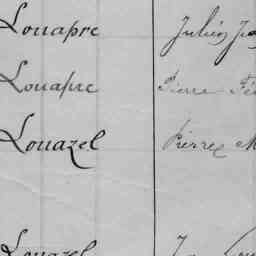 Louapre Julien
Louapre Pierre
Louazel Pierre M
Louazel